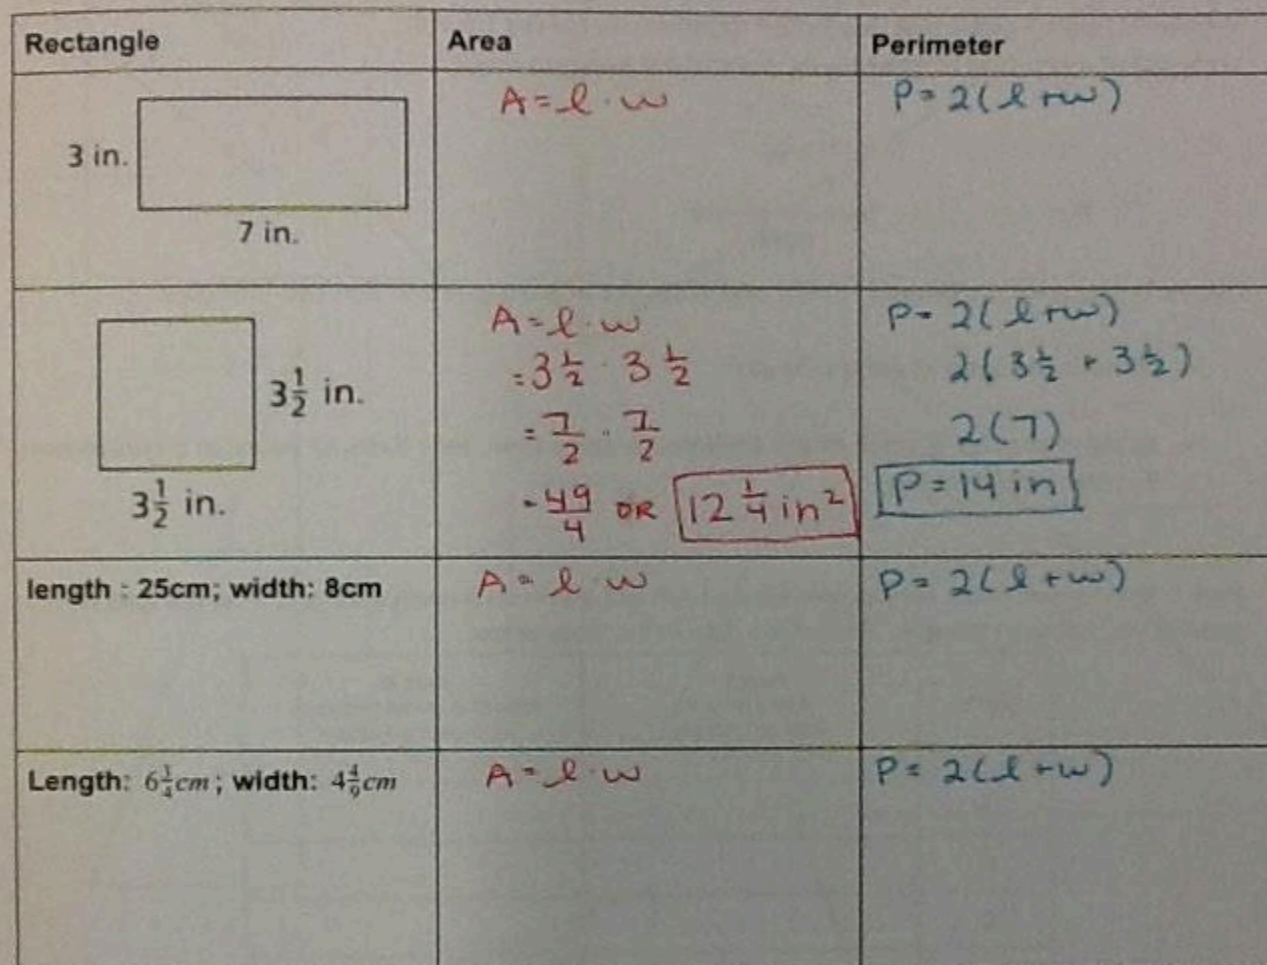 Rectangle Area Perimeter
3 in.
7 in.
A = l · w
P = 2(l + w)
3 1/2 in.
3 1/2 in.
A = l · w
= 3 1/2 · 3 1/2
= 7/2 · 7/2
= 49/4 OR 12 1/4 in²
P = 2(l + w)
2(3 1/2 + 3 1/2)
2(7)
P = 14 in
length : 25cm; width: 8cm
A = l · w
P = 2(l + w)
Length: 6 1/4 cm; width: 4 4/9 cm
A = l · w
P = 2(l + w)